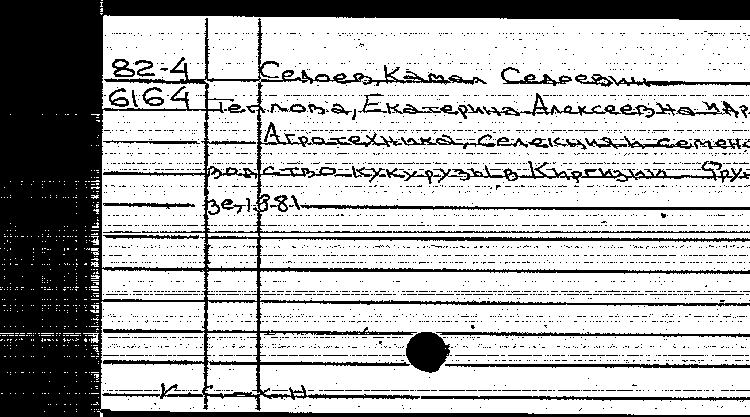 82-4 Седоев, Камал Седоевич
6164 Теплова, Екатерина Алексеевна и др
Агротехника, селекция и семено
водство кукурузы в Киргизии Фрун
зе, 1981